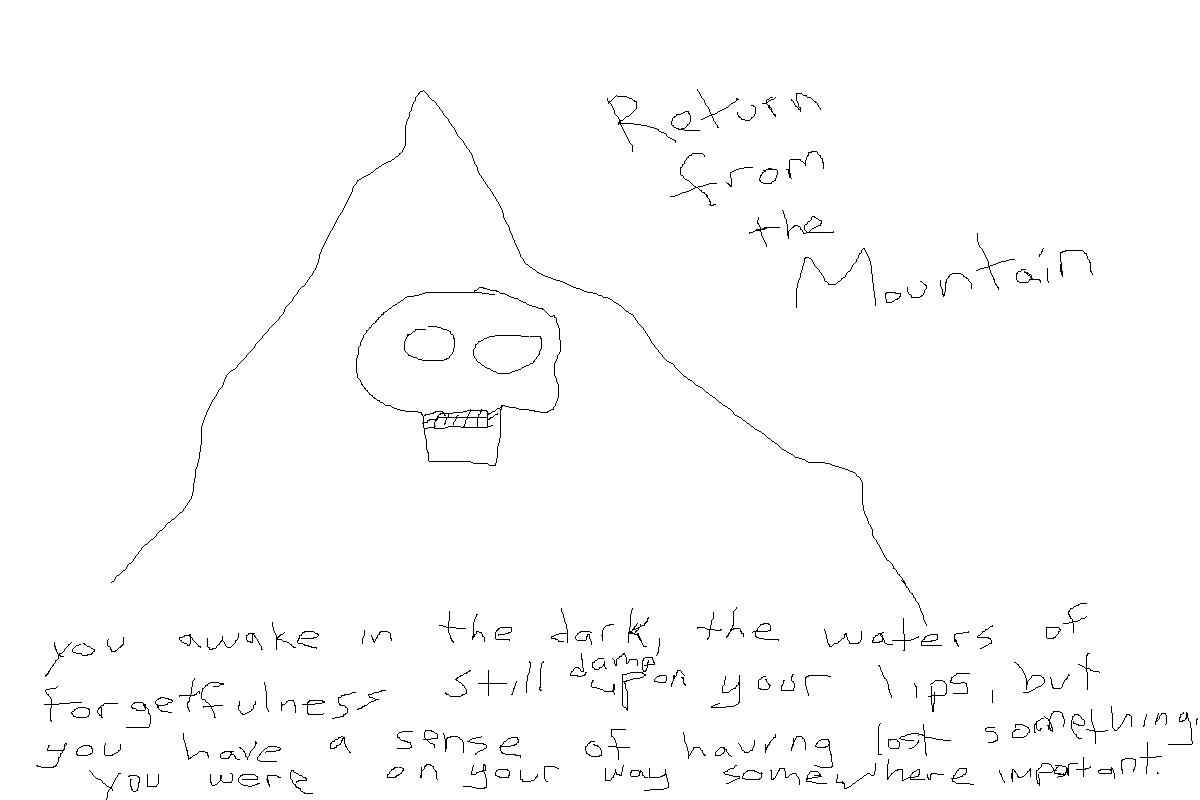 Return
from
the
Mountain
you awake in the dark, the waters of
forgetfulness still damp upon your lips, but
you have a sense of having lost something.
You were on your way somewhere important.